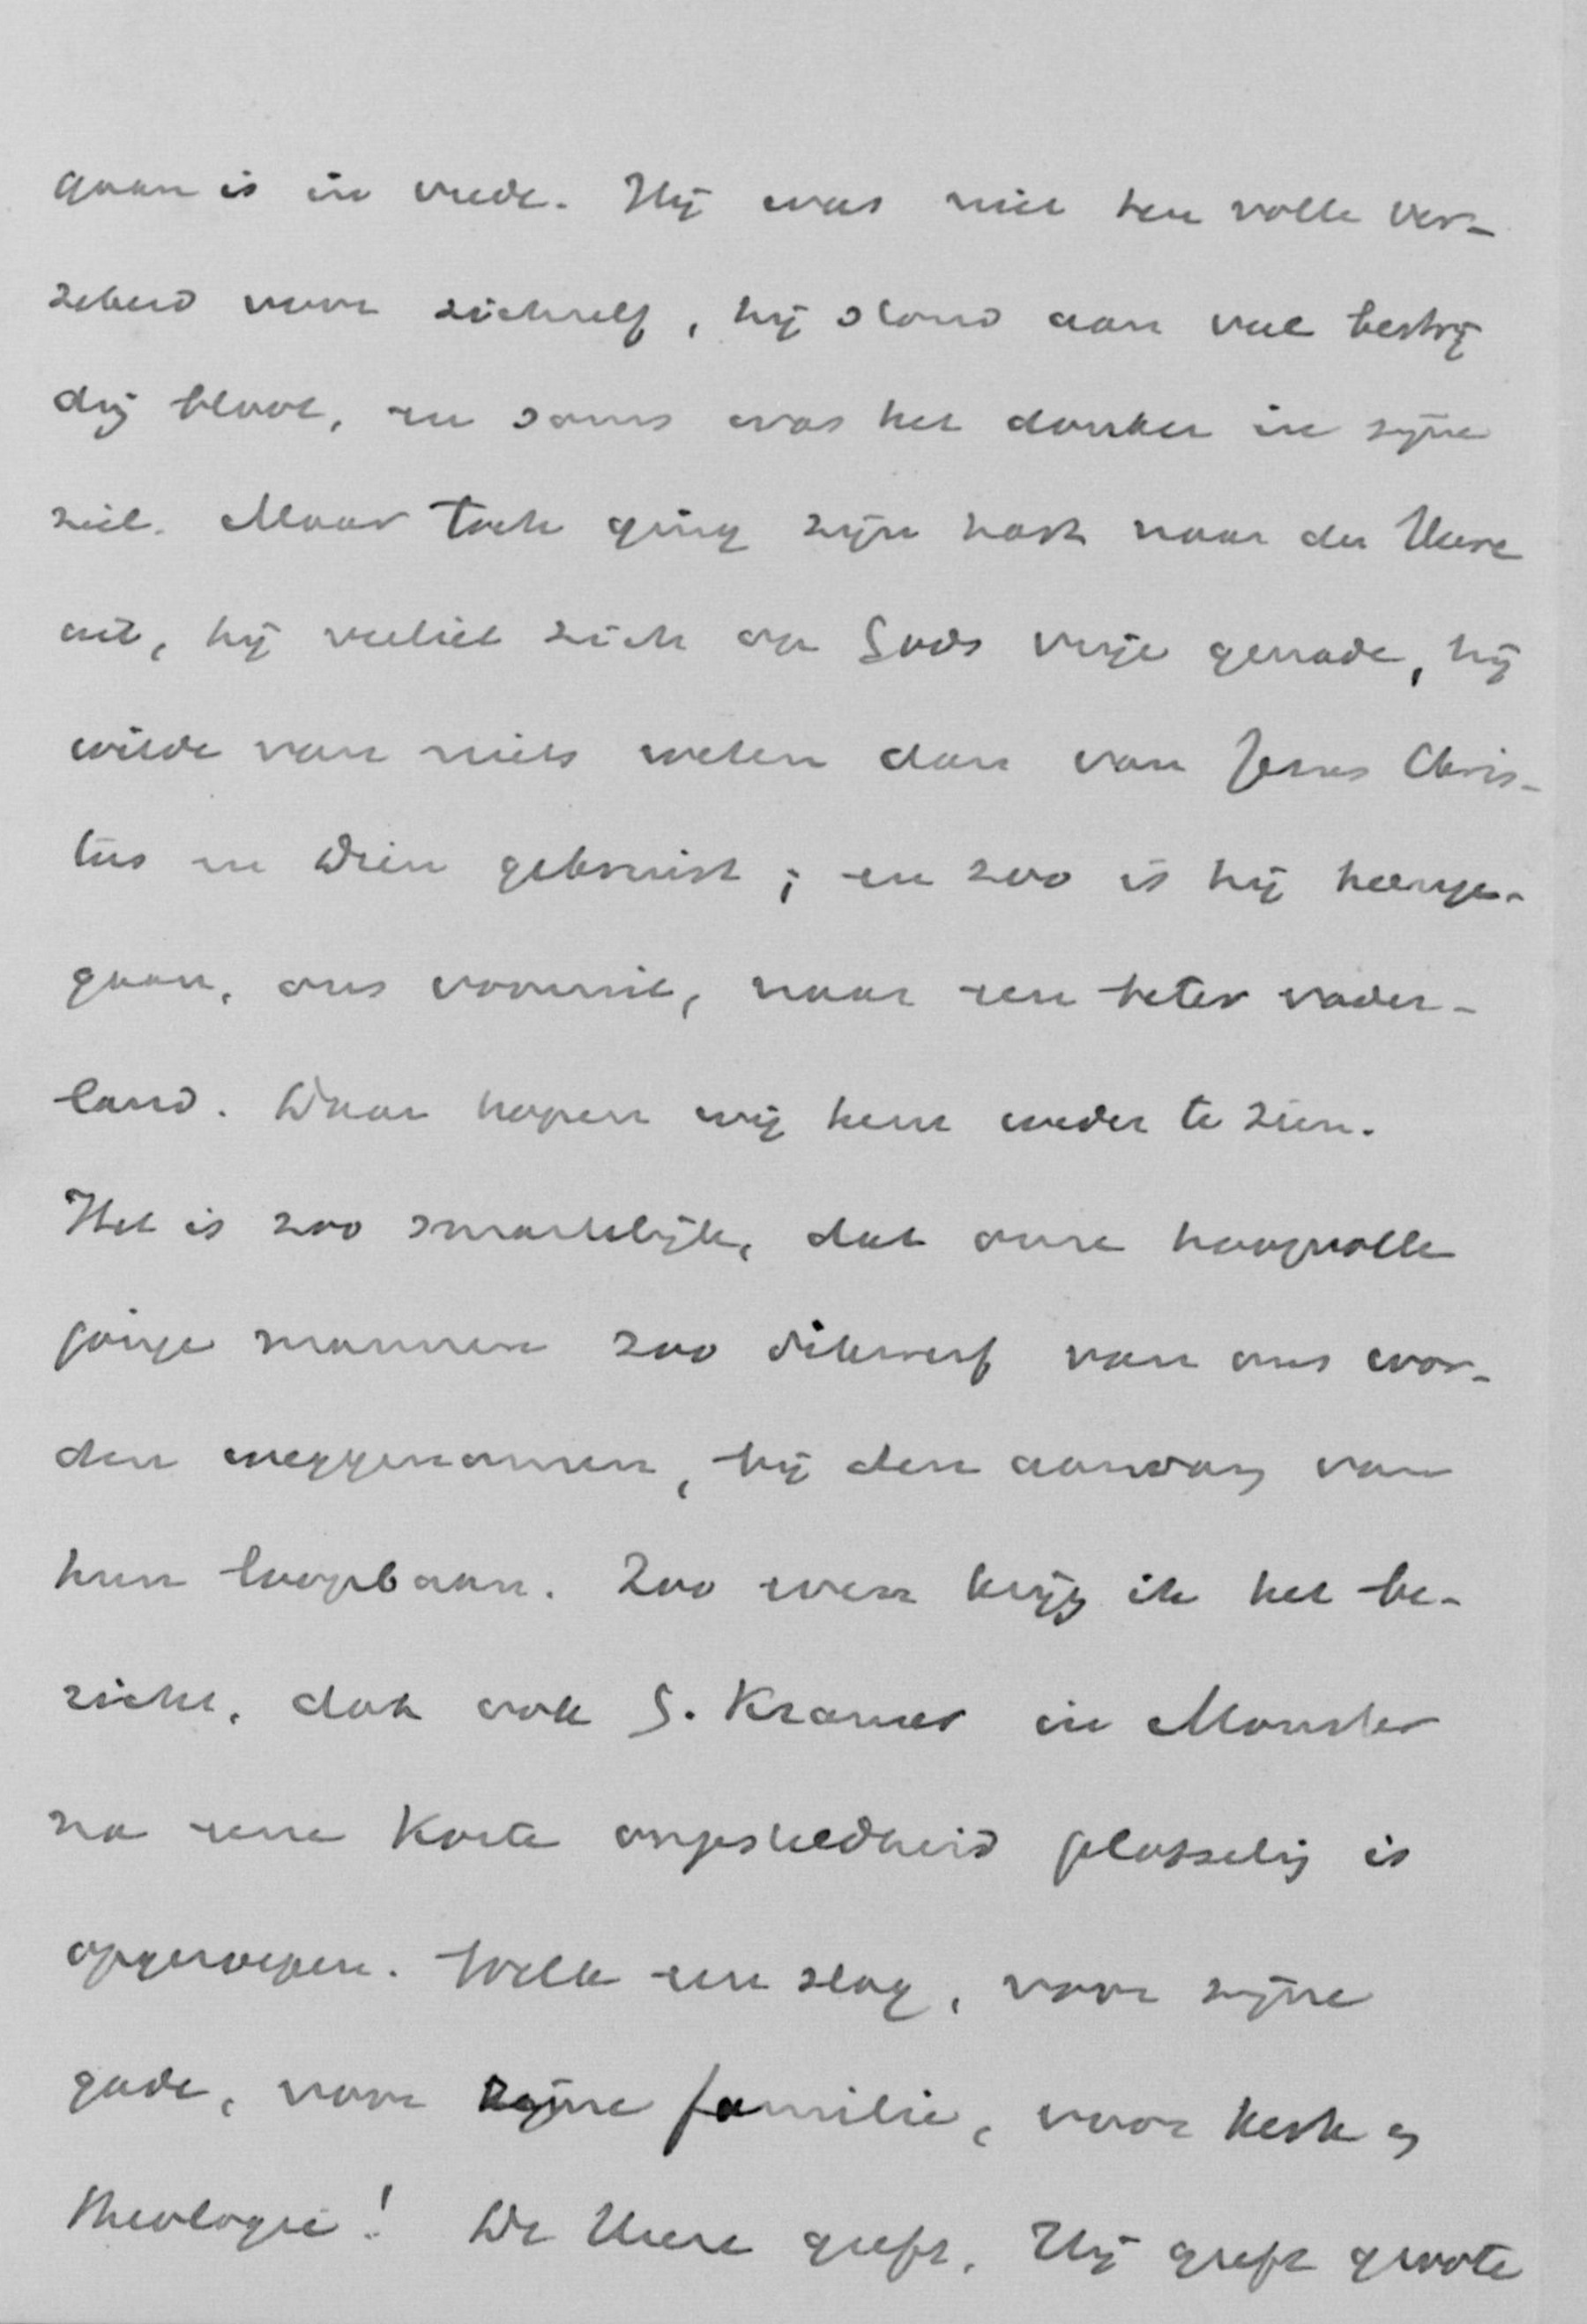 gaan is in vrede. Hij was niet ten volle ver-
zekerd voor zichzelf, hij stond aan veel bestrij
dig bloot, en soms was het donker in zijne
ziel. Maar toch ging zijn hart naar den Heere
uit, hij verliet zich op Gods vrije genade, hij
wilde van niets weten dan van Jezus Chris-
tus en Dien gekruist; en zoo is hij heenge-
gaan, ons vooruit, naar een beter vader-
land. Daar hopen wij hem weder te zien.
Het is zoo smartelijk, dat onze hoopvolle
jonge mannen zoo dikwerf van ons wor-
den weggenomen, bij den aanvang van
hun loopbaan. Zoo even krijg ik het be-
richt, dat ook G. Kramer in Monster
na eene korte ongesteldheid plotselijk is
opgeroepen. Welk een slag, voor zijne
gade, voor zijne familie, voor kerk en
theologie! De Heere geeft, Hij geeft groote